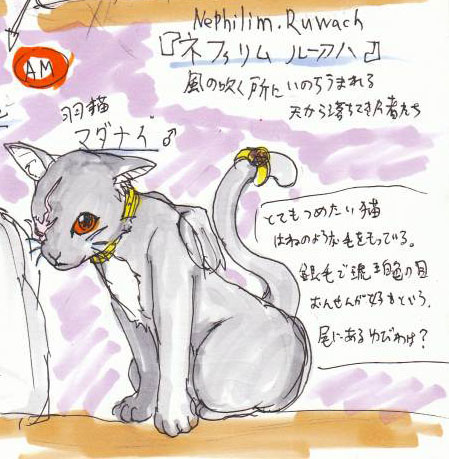 Nephilim.Ruwach
『ネフィリム ルーアハ』
風の吹く所にいのちうまれる
天から落ちてきた者たち
AM
羽猫
マダナイ♂
とてもつめたい猫
はねのような毛をもっている。
銀毛で琥珀色の目
おんせんが好きという.
尾にあるゆびわは?